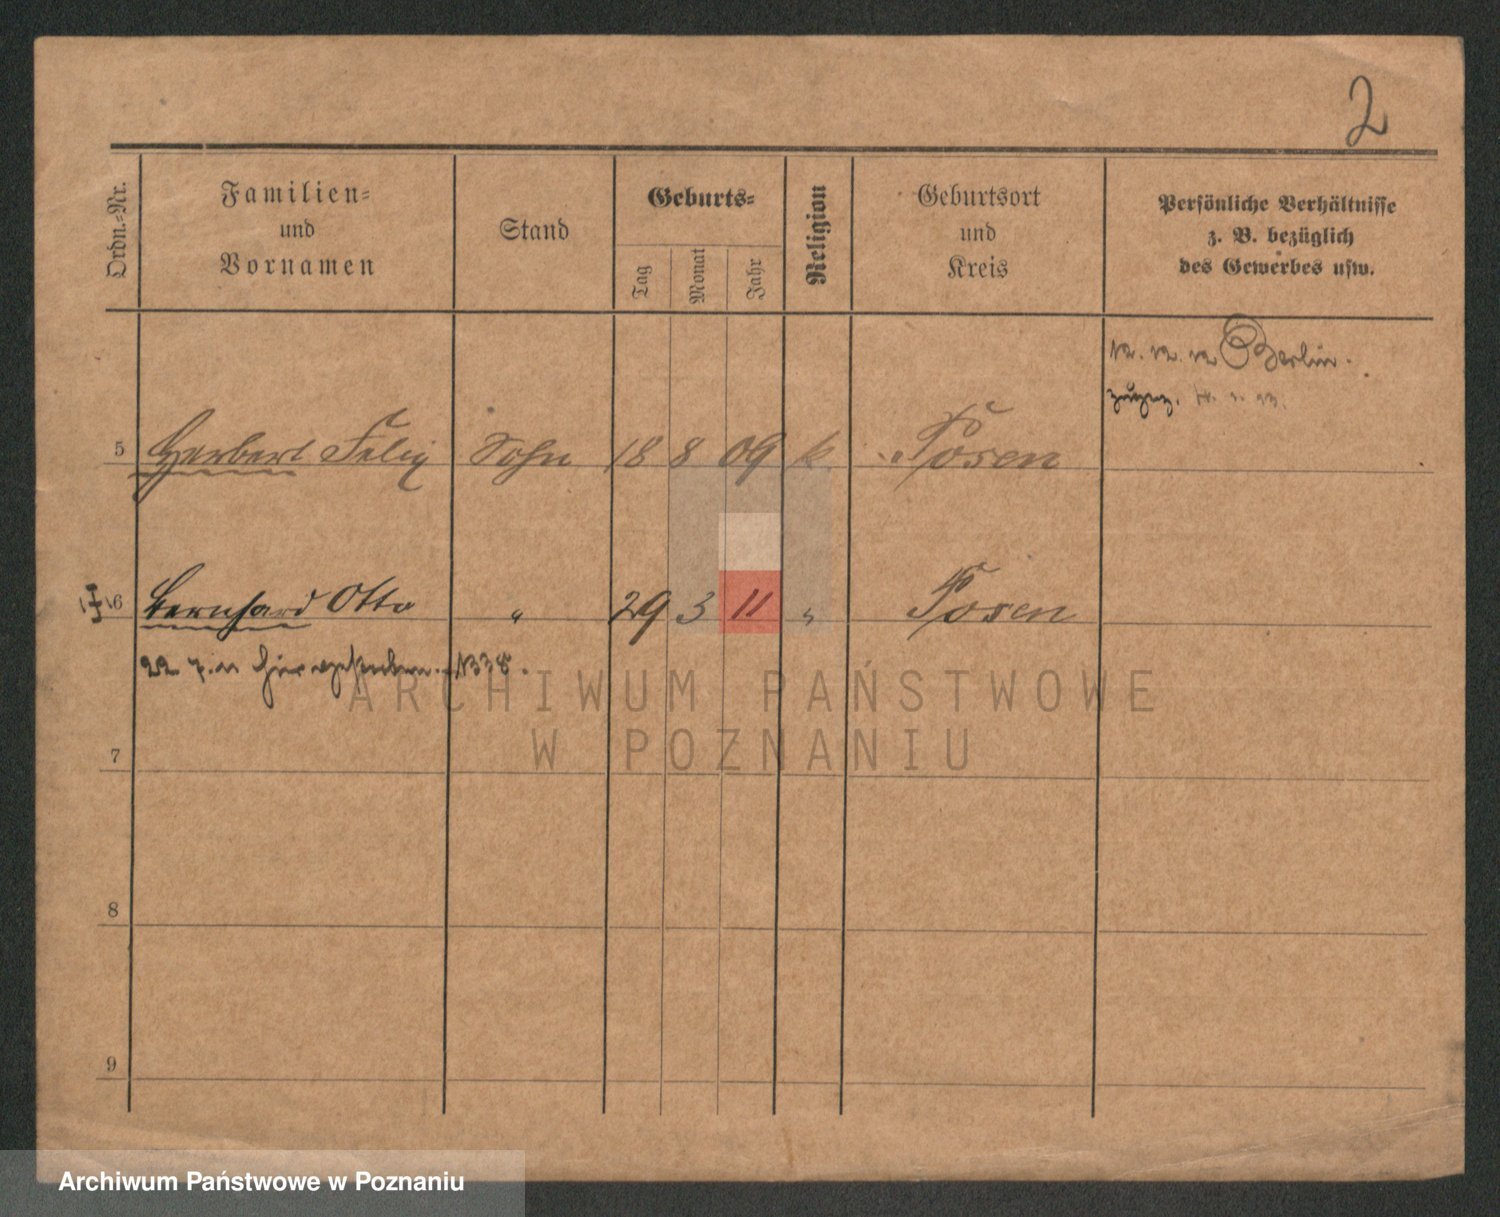 2
Ordn.-Nr.
Familien-
und
Vornamen
Stand
Geburts-
Tag
Monat
Jahr
Religion
Geburtsort
und
Kreis
Persönliche Verhältnisse
z. B. bezüglich
des Gewerbes usw.
Berlin.
5 Herbert Felix Sohn 18 8 09 k. Posen
6 Bernhard Otto " 29 3 11 " Posen
22 7. 11 hier
ARCHIWUM PAŃSTWOWE
W POZNANIU
7
8
9
Archiwum Państwowe w Poznaniu